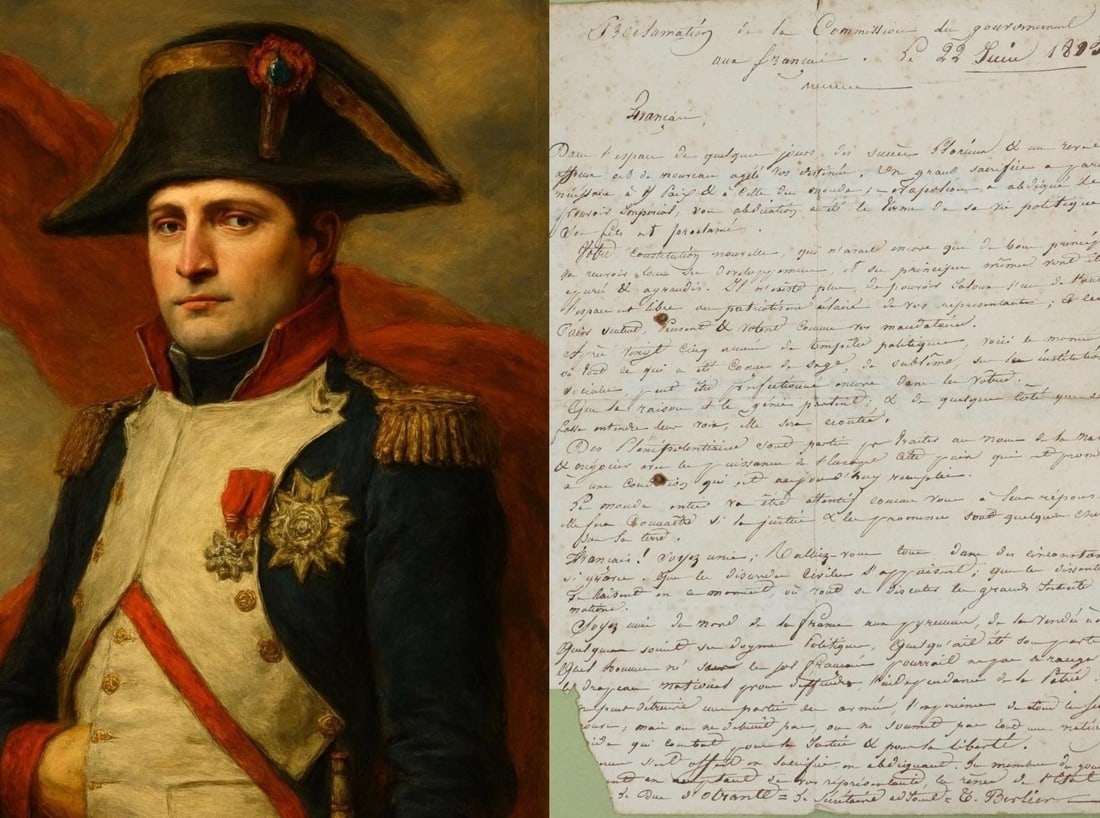 Proclamation de la Commission du gouvernement
aux français . Le 22 Juin 1815
Français,
Dans l'espace de quelques jours, des succès glorieux & un revers
affreux ont de nouveau agité vos destinées. Un grand sacrifice a paru
nécessaire à votre Paix & à Celle du monde ; Napoléon a abdiqué le
pouvoir Impérial, son abdication a été le terme de sa vie politique
Son fils est proclamé.
Votre Constitution nouvelle, qui n'avait encore que de bons princip
va recevoir tous ses développemens, et ses principes même vont êt
épurés & agrandis. Il n'existe plus de pouvoirs jaloux l'un de l'aut
l'espace est libre au patriotisme éclairé de vos représentants ; & les
Pairs sentent, Pensent & Votent comme vos mandataires.
Après Vingt Cinq années de tempêtes politiques, voici le moment
où tout ce qui a été Conçu de sage, de sublime, sur les institution
sociales peut être perfectionné encore dans les Vôtres.
Que la raison et le génie parlent ; & de quelque côté que se
fasse entendre leur voix, elle sera écoutée.
Des Plénipotentiaires sont partis pr traiter au nom de la na
& négocier avec les puissances de l'Europe Cette paix qui est prom
a une Condition qui est aujourd'huy remplie.
Le monde entier va être attentif comme vous a leur répons
elle fera Connaître si la justice & les promesses sont quelque chos
sur la terre.
Français ! Soyez unis ; Ralliez-vous tous dans des circonstan
si graves. Que les discordes Civiles s'appaisent ; que les dissent
se taisent en ce moment, où vont se discuter les grands Intérêts
nations.
Soyez unis du nord de la france aux pyrennées, de la Vendée à
Quelques soient ses dogmes Politiques, Quelqu'ait été son parti
Quel homme né sur le sol français pourrait ne pas se ranger
le drapeau national pour deffendre l'indépendance de la Patrie.
n peut détruire une partie des armées, l'expérience de tous les
mais on ne détruit pas on ne soumet pas tout une natio
qui combat pour la Justice & pour la liberté.
s'est offert en Sacrifice, en abdiquant, les membres du gou
en acceptant de vos représentants, les rênes de l'Etat
Le Duc d'Otrante = Le Secrétaire adjoint = T. Berlier